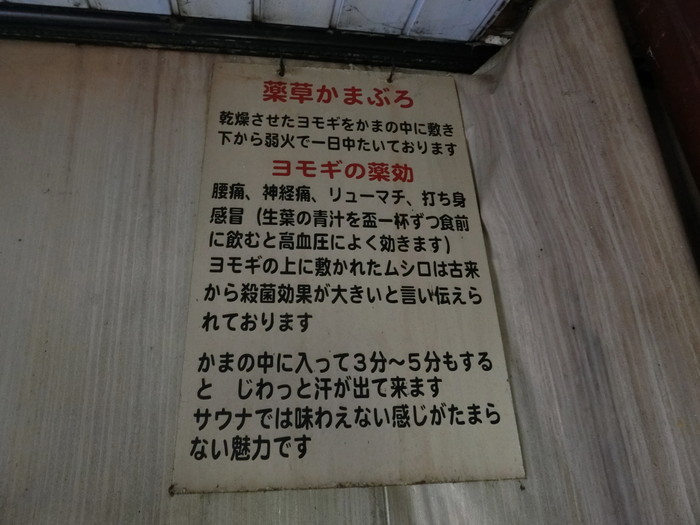 薬草かまぶろ
乾燥させたヨモギをかまの中に敷き
下から弱火で一日中たいております
ヨモギの薬効
腰痛、神経痛、リューマチ、打ち身
感冒（生葉の青汁を盃一杯ずつ食前
に飲むと高血圧によく効きます）
ヨモギの上に敷かれたムシロは古来
から殺菌効果が大きいと言い伝えら
れております
かまの中に入って３分～５分もする
と　じわっと汗が出て来ます
サウナでは味わえない感じがたまら
ない魅力です